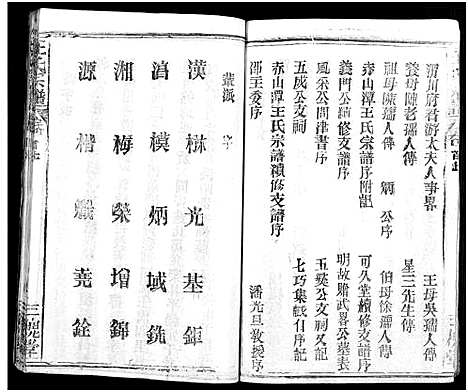 渭川府君游太夫人事畧
王母吳孺人傳
養母陳老孺人傳
星三先生傳
祖母陳孺人傳
炳公序
伯母徐孺人傳
赤山潭王氏宗譜序附記
可久堂續修支譜序
義門公續修支譜序
明故贈武畧公墓表
風采公問津書序
五英公支祠又記
五成公支祠記
七巧集紙有序
赤山潭王氏宗譜續修支譜序
邵主委序
潘光旦教授序
葉派 字
漢 樹 光 基 鉅
滔 模 炳 域 銑
湘 梅 榮 增 錦
源 楷 熾 堯 銓